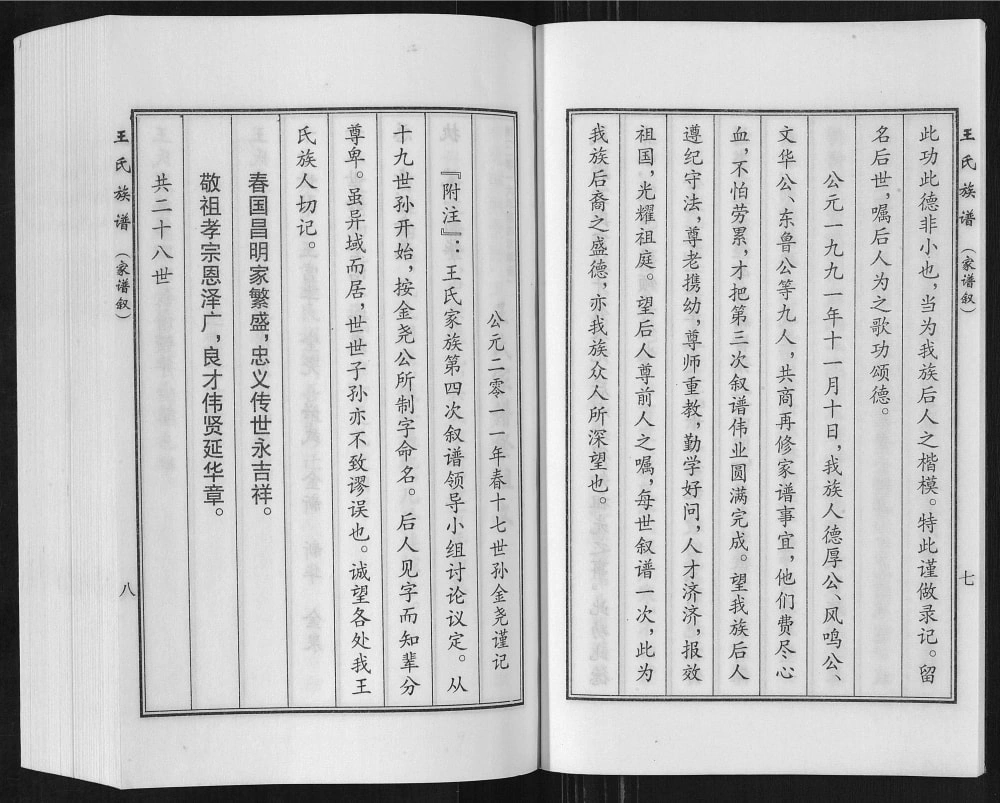 王氏族谱（家谱叙）
七
此功此德非小也，当为我族后人之楷模。特此谨做录记。留
名后世，嘱后人为之歌功颂德。
公元一九九一年十一月十日，我族人德厚公、风鸣公、
文华公、东鲁公等九人，共商再修家谱事宜，他们费尽心
血，不怕劳累，才把第三次叙谱伟业圆满完成。望我族后人
遵纪守法，尊老携幼，尊师重教，勤学好问，人才济济，报效
祖国，光耀祖庭。望后人尊前人之嘱，每世叙谱一次，此为
我族后裔之盛德，亦我族众人所深望也。
公元二零一一年春十七世孙金尧谨记
『附注』：王氏家族第四次叙谱领导小组讨论议定。从
十九世孙开始，按金尧公所制字命名。后人见字而知辈分
尊卑。虽异域而居，世世子孙亦不致谬误也。诚望各处我王
氏族人切记。
春国昌明家繁盛，忠义传世永吉祥。
敬祖孝宗恩泽广，良才伟贤延华章。
共二十八世
王氏族谱（家谱叙）
八